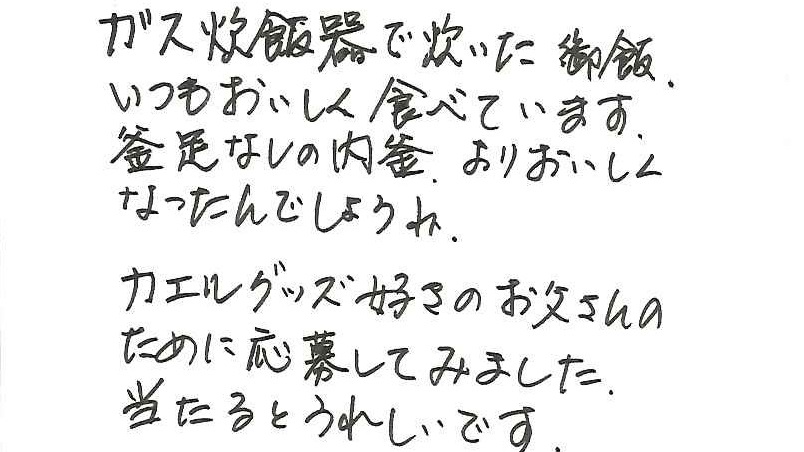 ガス炊飯器で炊いた御飯、
いつもおいしく食べています。
釜足なしの内釜、よりおいしく
なったんでしょうね。
カエルグッズ好きのお父さんの
ために応募してみました。
当たるとうれしいです。